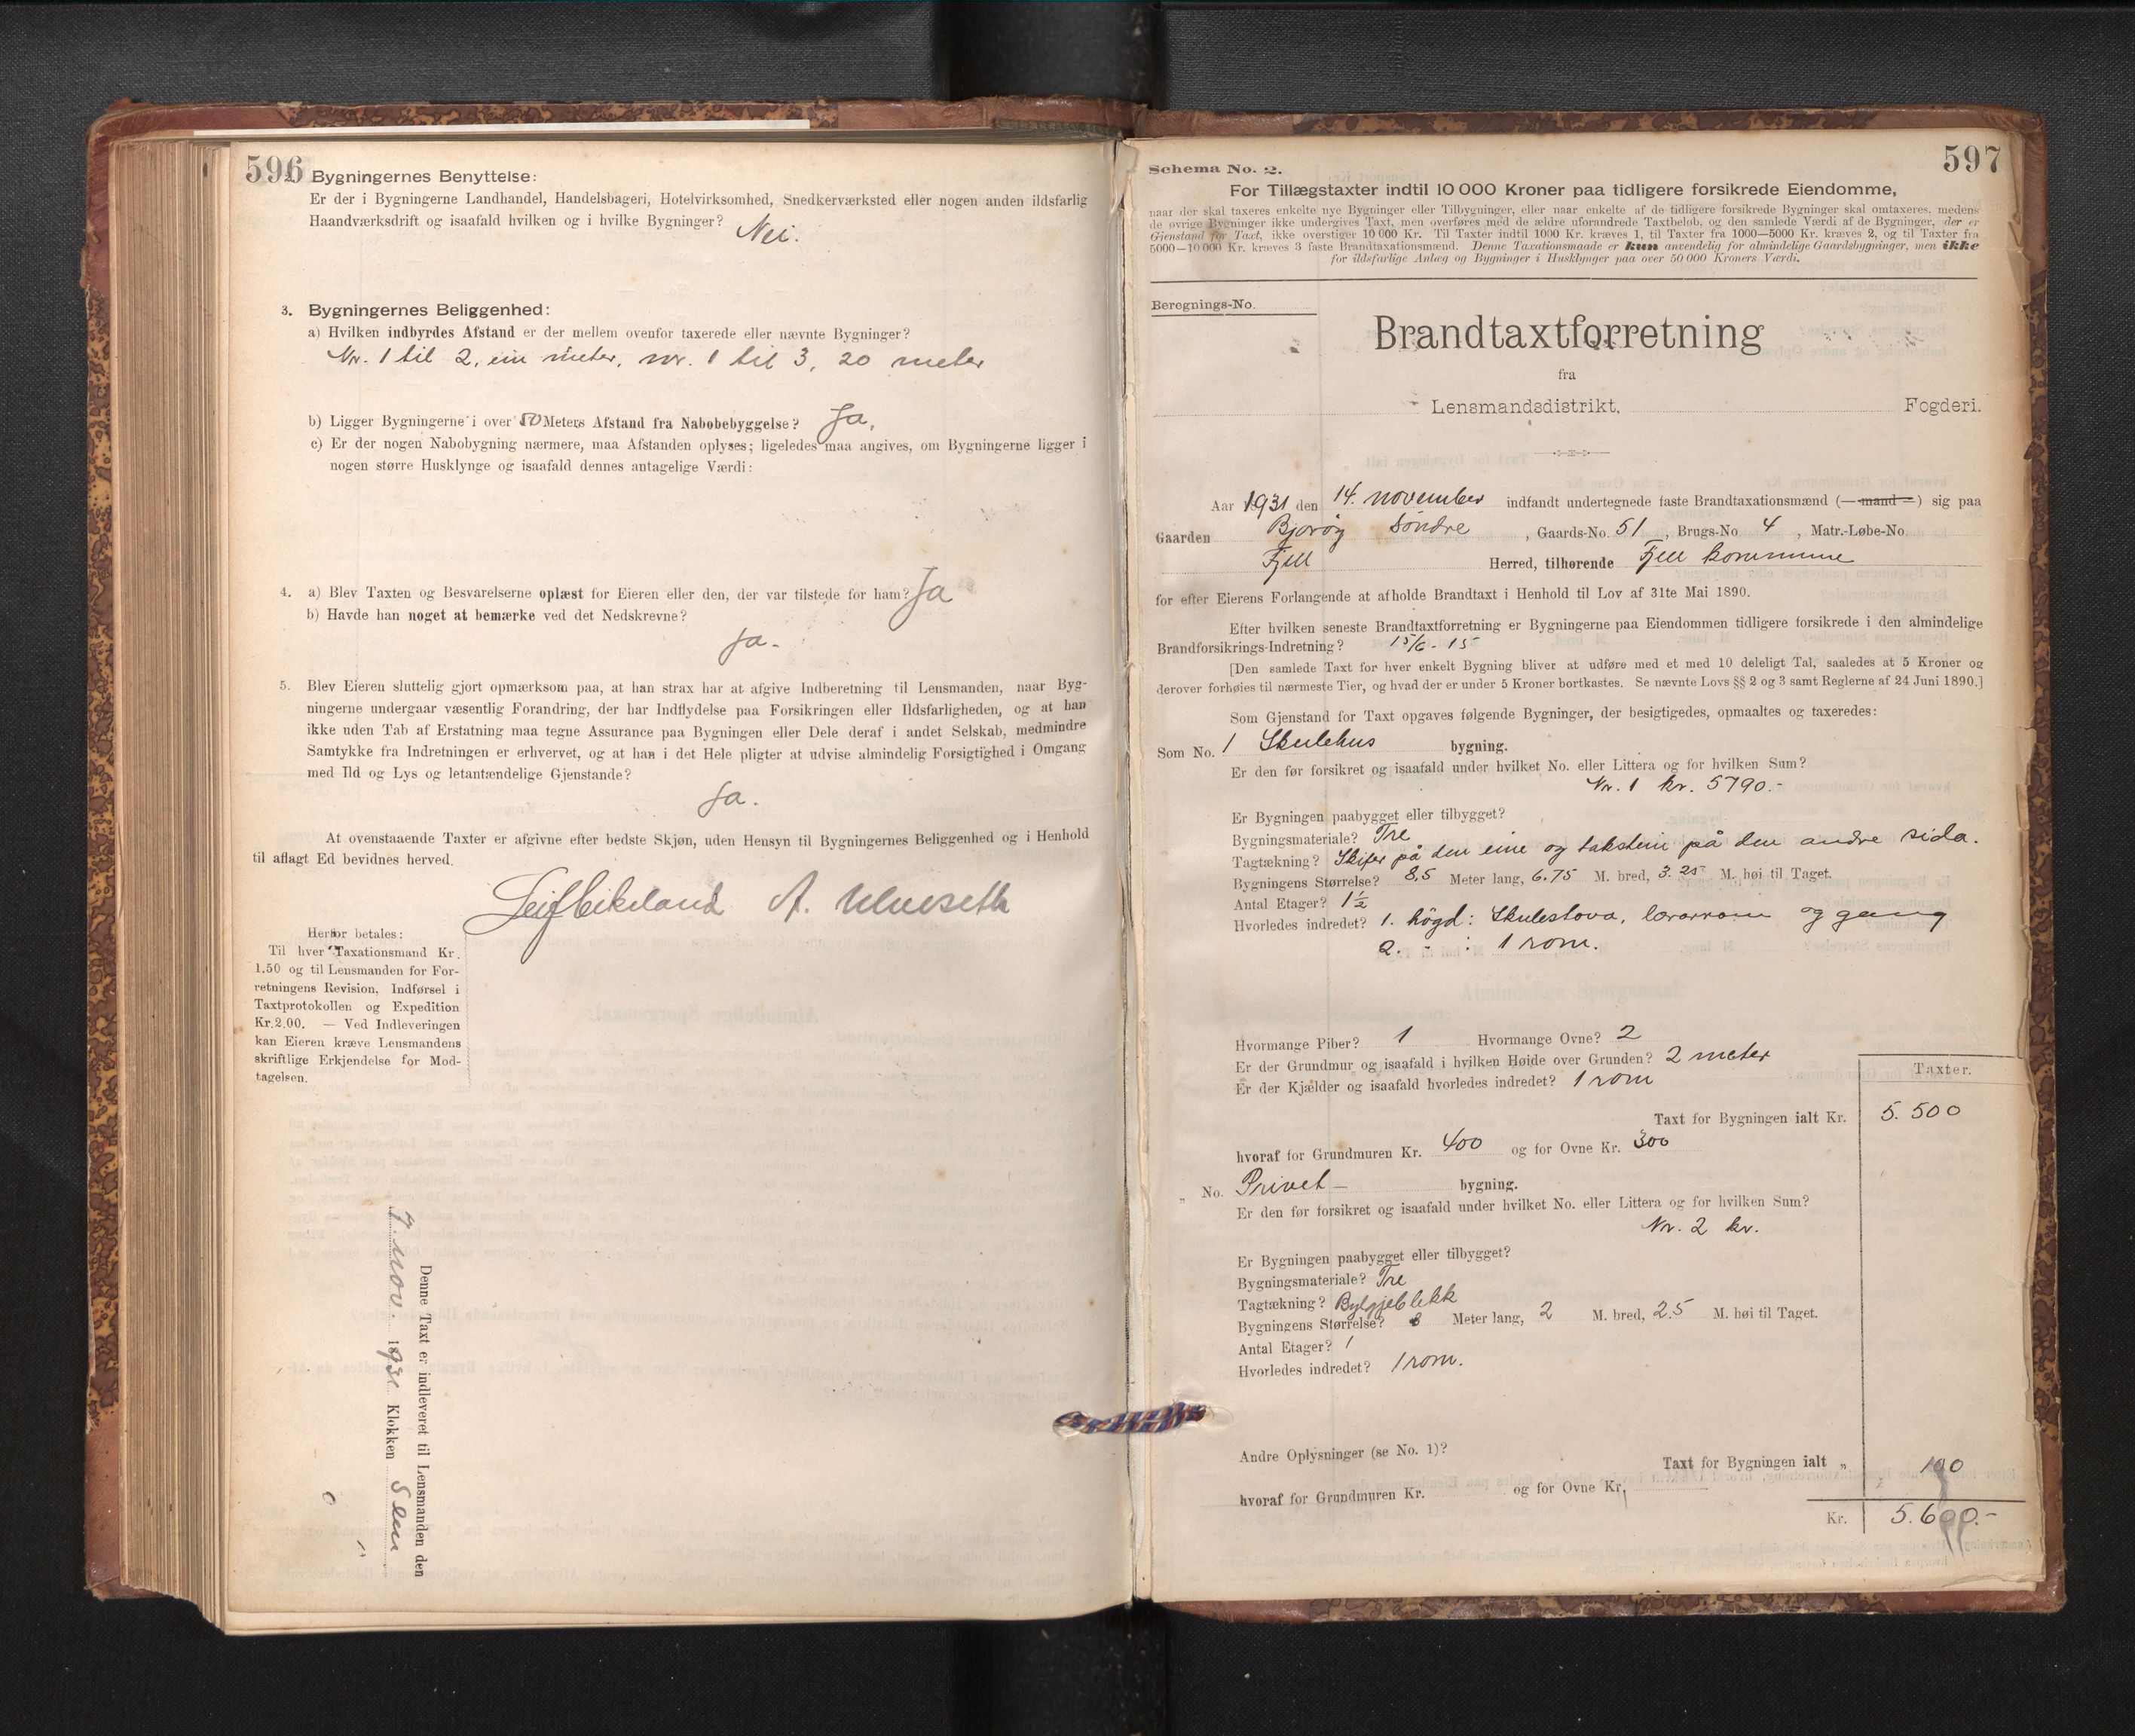 596
2. Bygningernes Benyttelse:
Er der i Bygningerne Landhandel, Handelsbageri, Hotelvirksomhed, Snedkerværksted eller nogen anden ildsfarlig
Haandværksdrift og isaafald hvilken og i hvilke Bygninger? Nei.
3. Bygningernes Beliggenhed:
a) Hvilken indbyrdes Afstand er der mellem ovenfor taxerede eller nævnte Bygninger?
Nr. 1 til 2, ein meter, nr. 1 til 3, 20 meter
b) Ligger Bygningerne i over 50 Meters Afstand fra Nabobebyggelse? Ja,
c) Er der nogen Nabobygning nærmere, maa Afstanden oplyses; ligeledes maa angives, om Bygningerne ligger i
nogen større Husklynge og isaafald dennes antagelige Værdi:
4. a) Blev Taxten og Besvarelserne oplæst for Eieren eller den, der var tilstede for ham? Ja
b) Havde han noget at bemærke ved det Nedskrevne?
Ja.
5. Blev Eieren sluttelig gjort opmærksom paa, at han strax har at afgive Indberetning til Lensmanden, naar Byg-
ningerne undergaar væsentlig Forandring, der har Indflydelse paa Forsikringen eller Ildsfarligheden, og at han
ikke uden Tab af Erstatning maa tegne Assurance paa Bygningen eller Dele deraf i andet Selskab, medmindre
Samtykke fra Indretningen er erhvervet, og at han i det Hele pligter at udvise almindelig Forsigtighed i Omgang
med Ild og Lys og letantændelige Gjenstande?
Ja.
At ovenstaaende Taxter er afgivne efter bedste Skjøn, uden Hensyn til Bygningernes Beliggenhed og i Henhold
til aflagt Ed bevidnes herved.
Leif A. Ulveseth
Herfor betales:
Til hver Taxationsmand Kr.
1.50 og til Lensmanden for For-
retningens Revision, Indførsel i
Taxtprotokollen og Expedition
Kr. 2.00. — Ved Indleveringen
kan Eieren kræve Lensmandens
skriftlige Erkjendelse for Mod-
tagelsen.
Denne Taxt er indleveret til Lensmanden den
7. nov. 1931 Klokken 5 em
597
Schema No. 2.
For Tillægstaxter indtil 10 000 Kroner paa tidligere forsikrede Eiendomme,
naar der skal taxeres enkelte nye Bygninger eller Tilbygninger, eller naar enkelte af de tidligere forsikrede Bygninger skal omtaxeres, medens
de øvrige Bygninger ikke undergives Taxt, men overføres med de ældre uforandrede Taxtbeløb, og den samlede Værdi af de Bygninger, der er
Gjenstand for Taxt, ikke overstiger 10 000 Kr. Til Taxter indtil 1000 Kr. kræves 1, til Taxter fra 1000—5000 Kr. kræves 2, og til Taxter fra
5000—10 000 Kr. kræves 3 faste Brandtaxationsmænd. Denne Taxationsmaade er kun anvendelig for almindelige Gaardsbygninger, men ikke
for ildsfarlige Anlæg og Bygninger i Husklynger paa over 50 000 Kroners Værdi.
Beregnings-No.
Brandtaxtforretning
fra
Lensmandsdistrikt, Fogderi.
Aar 1931 den 14. november indfandt undertegnede faste Brandtaxationsmænd (— mand —) sig paa
Gaarden Bjorøy Söndre, Gaards-No. 51, Brugs-No 4, Matr.-Løbe-No.
Fjell Herred, tilhørende Fjell kommune
for efter Eierens Forlangende at afholde Brandtaxt i Henhold til Lov af 31te Mai 1890.
Efter hvilken seneste Brandtaxtforretning er Bygningerne paa Eiendommen tidligere forsikrede i den almindelige
Brandforsikrings-Indretning? 15/6 - 15
[Den samlede Taxt for hver enkelt Bygning bliver at udføre med et med 10 deleligt Tal, saaledes at 5 Kroner og
derover forhøies til nærmeste Tier, og hvad der er under 5 Kroner bortkastes. Se nævnte Lovs §§ 2 og 3 samt Reglerne af 24 Juni 1890.]
Som Gjenstand for Taxt opgaves følgende Bygninger, der besigtigedes, opmaaltes og taxeredes:
Som No. 1 Skulehus bygning.
Er den før forsikret og isaafald under hvilket No. eller Littera og for hvilken Sum?
Nr. 1 kr. 5790.-
Er Bygningen paabygget eller tilbygget?
Bygningsmateriale? Tre
Tagtækning? Skifer på den eine og takstein på den andre sida.
Bygningens Størrelse? 8,5 Meter lang, 6.75 M. bred, 3.25 M. høi til Taget.
Antal Etager? 1½
Hvorledes indredet? 1. högd: Skulestova, lærarrom og gang
2. - : 1 rom.
Hvormange Piber? 1 Hvormange Ovne? 2
Er der Grundmur og isaafald i hvilken Høide over Grunden? 2 meter
Er der Kjælder og isaafald hvorledes indredet? 1 rom
Taxter.
Taxt for Bygningen ialt Kr. 5.500
hvoraf for Grundmuren Kr. 400 og for Ovne Kr. 300
„ No. Privet - bygning.
Er den før forsikret og isaafald under hvilket No. eller Littera og for hvilken Sum?
Nr. 2 kr.
Er Bygningen paabygget eller tilbygget?
Bygningsmateriale? Tre
Tagtækning? Bylgjeblekk
Bygningens Størrelse? 3 Meter lang, 2 M. bred, 2.5 M. høi til Taget.
Antal Etager? 1
Hvorledes indredet? 1 rom.
Andre Oplysninger (se No. 1)?
Taxt for Bygningen ialt „ 100
hvoraf for Grundmuren Kr. og for Ovne Kr.
Kr. 5.600.-